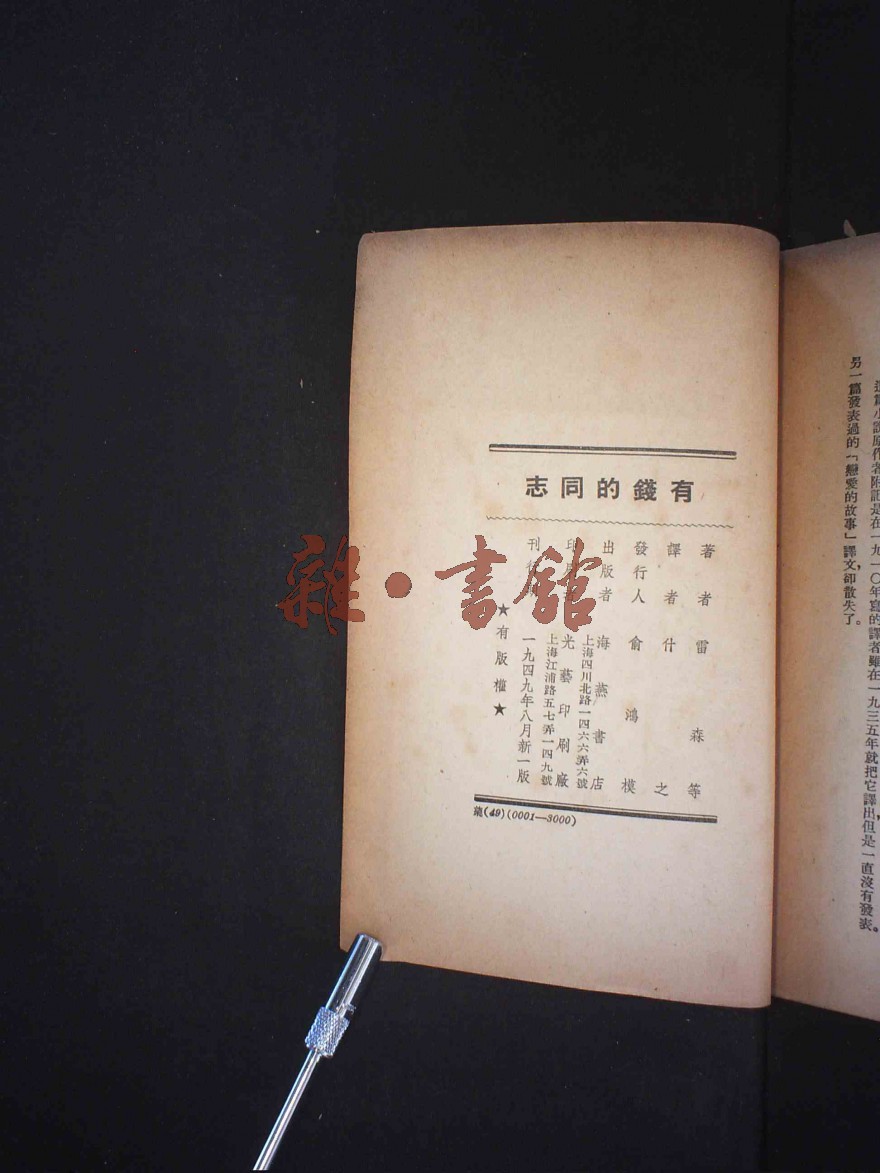 這篇小說原作者附註是在一九一〇年寫的譯者雖在一九三五年就把它譯出,但是一直沒有發表。
另一篇發表過的「戀愛的故事」譯文,卻散失了。
有錢的同志
著者 雷森等
譯者 什之
發行人 俞鴻模
出版者 海燕書店
上海四川北路一四六六弄六號
印刷者 光藝印刷廠
上海江浦路五七弄一四九號
刊行期 一九四九年八月新一版
★有版權★
(49)(0001—3000)
雜·書館